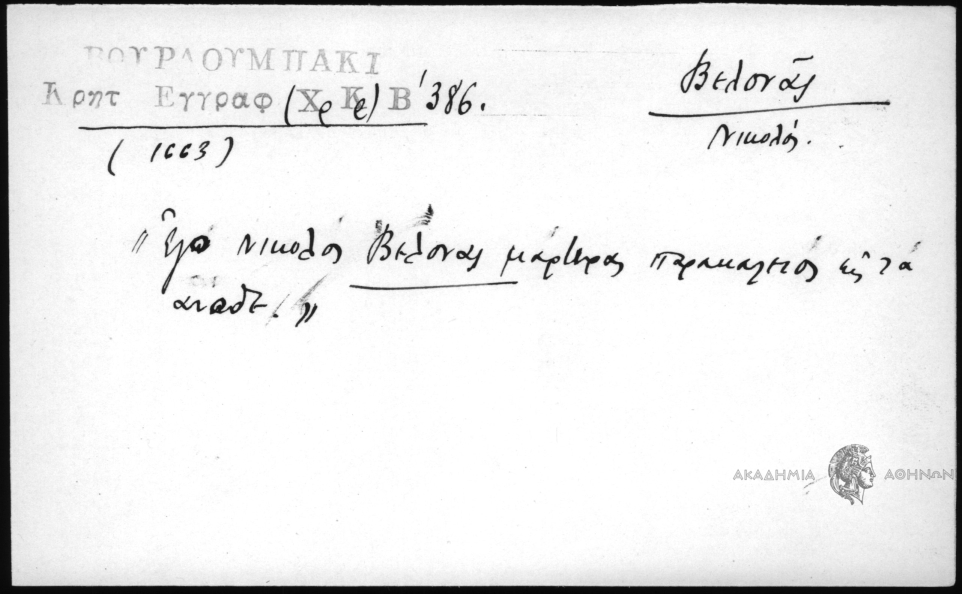 ΒΟΥΡΔΟΥΜΠΑΚΙ
Κρητ Εγγραφ (Χρ Κρ) Β' 386.
(1663)
Βελονᾶς
Νικολός.
"Ἐγο νικολος Βελονας μάρτιρας παρακαλετος εις τα
ανοθε."
ΑΚΑΔΗΜΙΑ ΑΘΗΝΩΝ